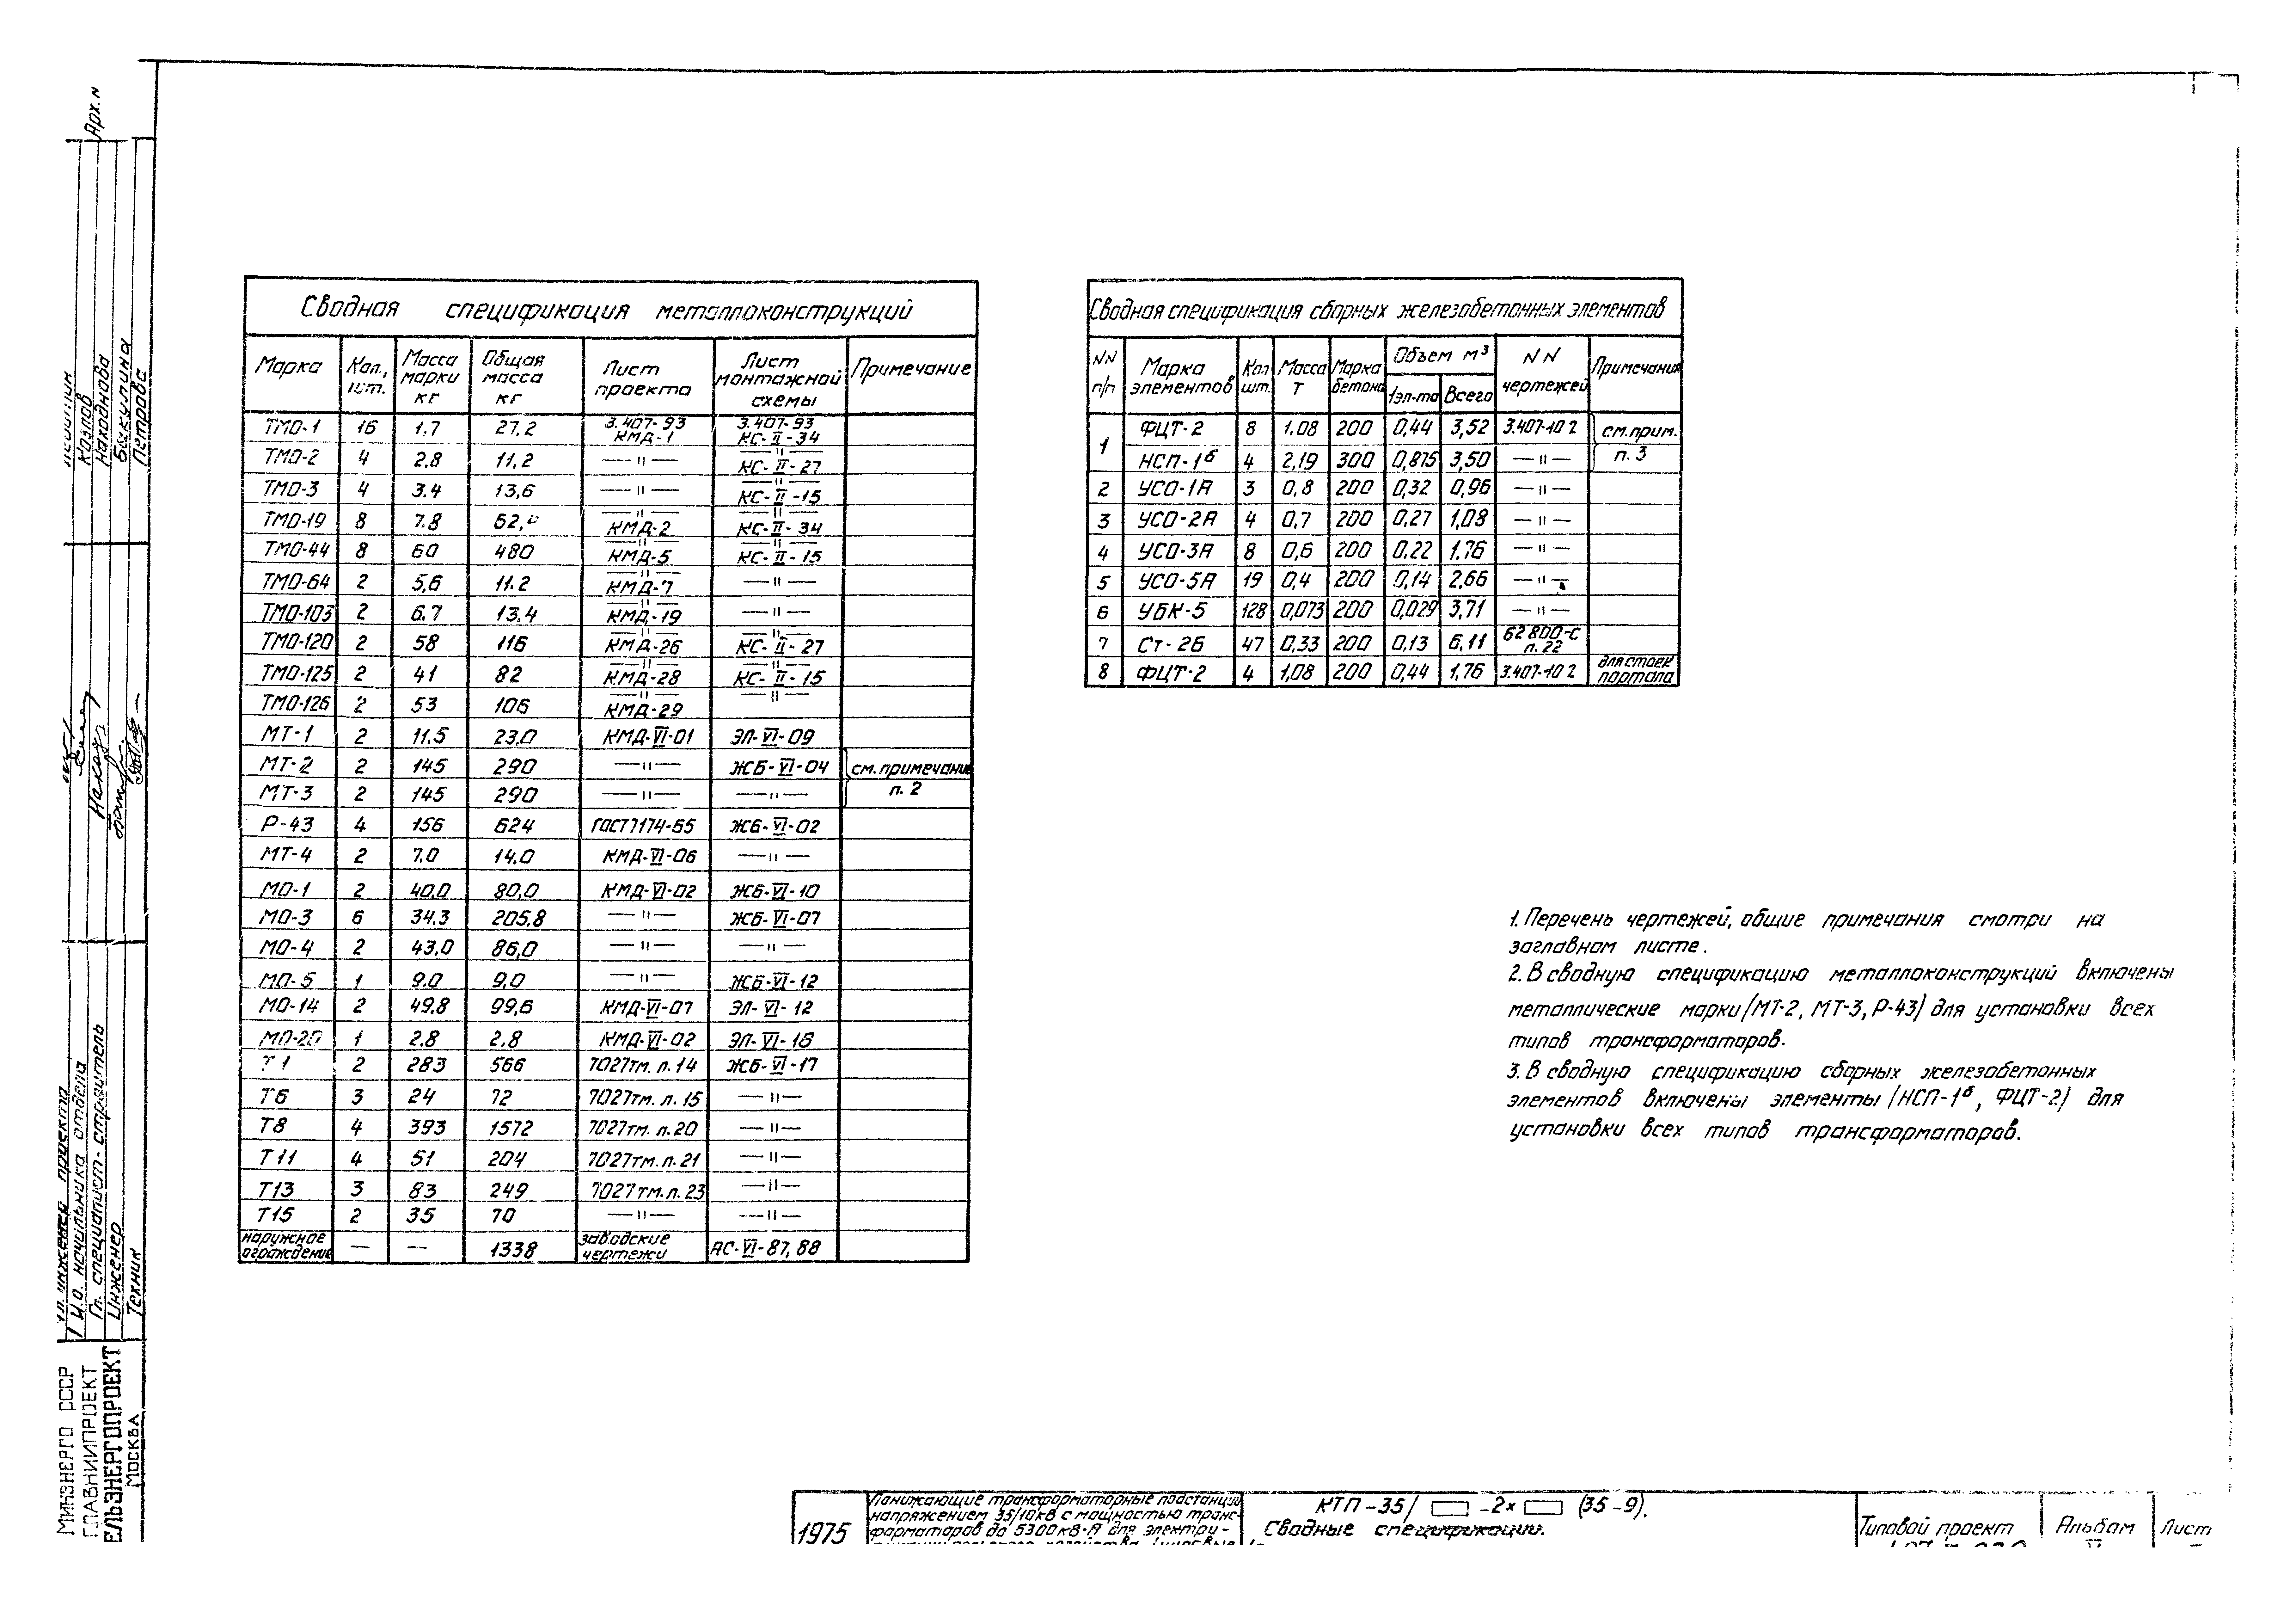 Арх. н
Козлов
Находнова
Бакулина
Петрова
И.о. начальника отдела
Гл. специалист-строитель
Инженер
Техник
МИНЭНЕРГО СССР
ГЛАВНИИПРОЕКТ
ЕЛЬЭНЕРГОПРОЕКТ
МОСКВА
Сводная спецификация металлоконструкций
Марка | Кол., шт. | Масса марки кг | Общая масса кг | Лист проекта | Лист монтажной схемы | Примечание
ТМО-1 | 16 | 1.7 | 27,2 | 3.407-93 КМД-1 | 3.407-93 КС-II-34
ТМО-2 | 4 | 2.8 | 11.2 | —〃— | —〃— КС-II-27
ТМО-3 | 4 | 3.4 | 13,6 | —〃— | —〃— КС-II-15
ТМО-19 | 8 | 7.8 | 62, | —〃— КМД-2 | —〃— КС-II-34
ТМО-44 | 8 | 60 | 480 | —〃— КМД-5 | —〃— КС-II-15
ТМО-64 | 2 | 5,6 | 11.2 | —〃— КМД-7 | —〃—
ТМО-103 | 2 | 6.7 | 13.4 | —〃— КМД-19 | —〃—
ТМО-120 | 2 | 58 | 116 | —〃— КМД-26 | —〃— КС-II-27
ТМО-125 | 2 | 41 | 82 | —〃— КМД-28 | —〃— КС-II-15
ТМО-126 | 2 | 53 | 106 | —〃— КМД-29 | —〃—
МТ-1 | 2 | 11.5 | 23,0 | КМД-VI-01 | ЭЛ-VI-09
МТ-2 | 2 | 145 | 290 | —〃— | ЖБ-VI-04 | см. примечание
МТ-3 | 2 | 145 | 290 | —〃— | —〃— | п. 2
Р-43 | 4 | 156 | 624 | ГОСТ7174-65 | ЖБ-VI-02
МТ-4 | 2 | 7.0 | 14.0 | КМД-VI-06 | —〃—
МО-1 | 2 | 40,0 | 80,0 | КМД-VI-02 | ЖБ-VI-10
МО-3 | 6 | 34.3 | 205.8 | —〃— | ЖБ-VI-07
МО-4 | 2 | 43,0 | 86,0 | —〃— | —〃—
МО-5 | 1 | 9.0 | 9,0 | —〃— | ЖБ-VI-12
МО-14 | 2 | 49.8 | 99,6 | КМД-VI-07 | ЭЛ-VI-12
МО-20 | 1 | 2.8 | 2.8 | КМД-VI-02 | ЭЛ-VI-16
Т1 | 2 | 283 | 566 | 7027тм. л. 14 | ЖБ-VI-17
Т6 | 3 | 24 | 72 | 7027тм. л. 15 | —〃—
Т8 | 4 | 393 | 1572 | 7027тм. л. 20 | —〃—
Т11 | 4 | 51 | 204 | 7027тм. л. 21 | —〃—
Т13 | 3 | 83 | 249 | 7027тм. л. 23 | —〃—
Т15 | 2 | 35 | 70 | —〃— | —〃—
наружное ограждение | — | — | 1338 | заводские чертежи | АС-VI-87, 88
Сводная спецификация сборных железобетонных элементов
NN п/п | Марка элементов | Кол шт. | Масса Т | Марка бетона | Объем м³ 1эл-та | Всего | NN чертежей | Примечания
1 | ФЦТ-2 | 8 | 1,08 | 200 | 0,44 | 3,52 | 3.407-102 | см. прим.
НСП-1б | 4 | 2,19 | 300 | 0,875 | 3,50 | —〃— | п. 3
2 | УСО-1А | 3 | 0,8 | 200 | 0,32 | 0,96 | —〃—
3 | УСО-2А | 4 | 0,7 | 200 | 0,27 | 1,08 | —〃—
4 | УСО-3А | 8 | 0,6 | 200 | 0,22 | 1,76 | —〃—
5 | УСО-5А | 19 | 0,4 | 200 | 0,14 | 2,66 | —〃—
6 | УБК-5 | 128 | 0,073 | 200 | 0,029 | 3,71 | —〃—
7 | Ст-2б | 47 | 0,33 | 200 | 0,13 | 6,11 | 62800-С л. 22
8 | ФЦТ-2 | 4 | 1,08 | 200 | 0,44 | 1,76 | 3.407-102 | для стоек портала
1. Перечень чертежей, общие примечания смотри на
заглавном листе.
2. В сводную спецификацию металлоконструкций включены
металлические марки (МТ-2, МТ-3, Р-43) для установки всех
типов трансформаторов.
3. В сводную спецификацию сборных железобетонных
элементов включены элементы (НСП-1б, ФЦТ-2) для
установки всех типов трансформаторов.
1975
Понижающие трансформаторные подстанции
напряжением 35/10кВ с мощностью транс-
форматоров до 6300кВ·А для электри-
КТП-35/ -2× (35-9).
Сводные спецификации.
Типовой проект
Альбом
Лист